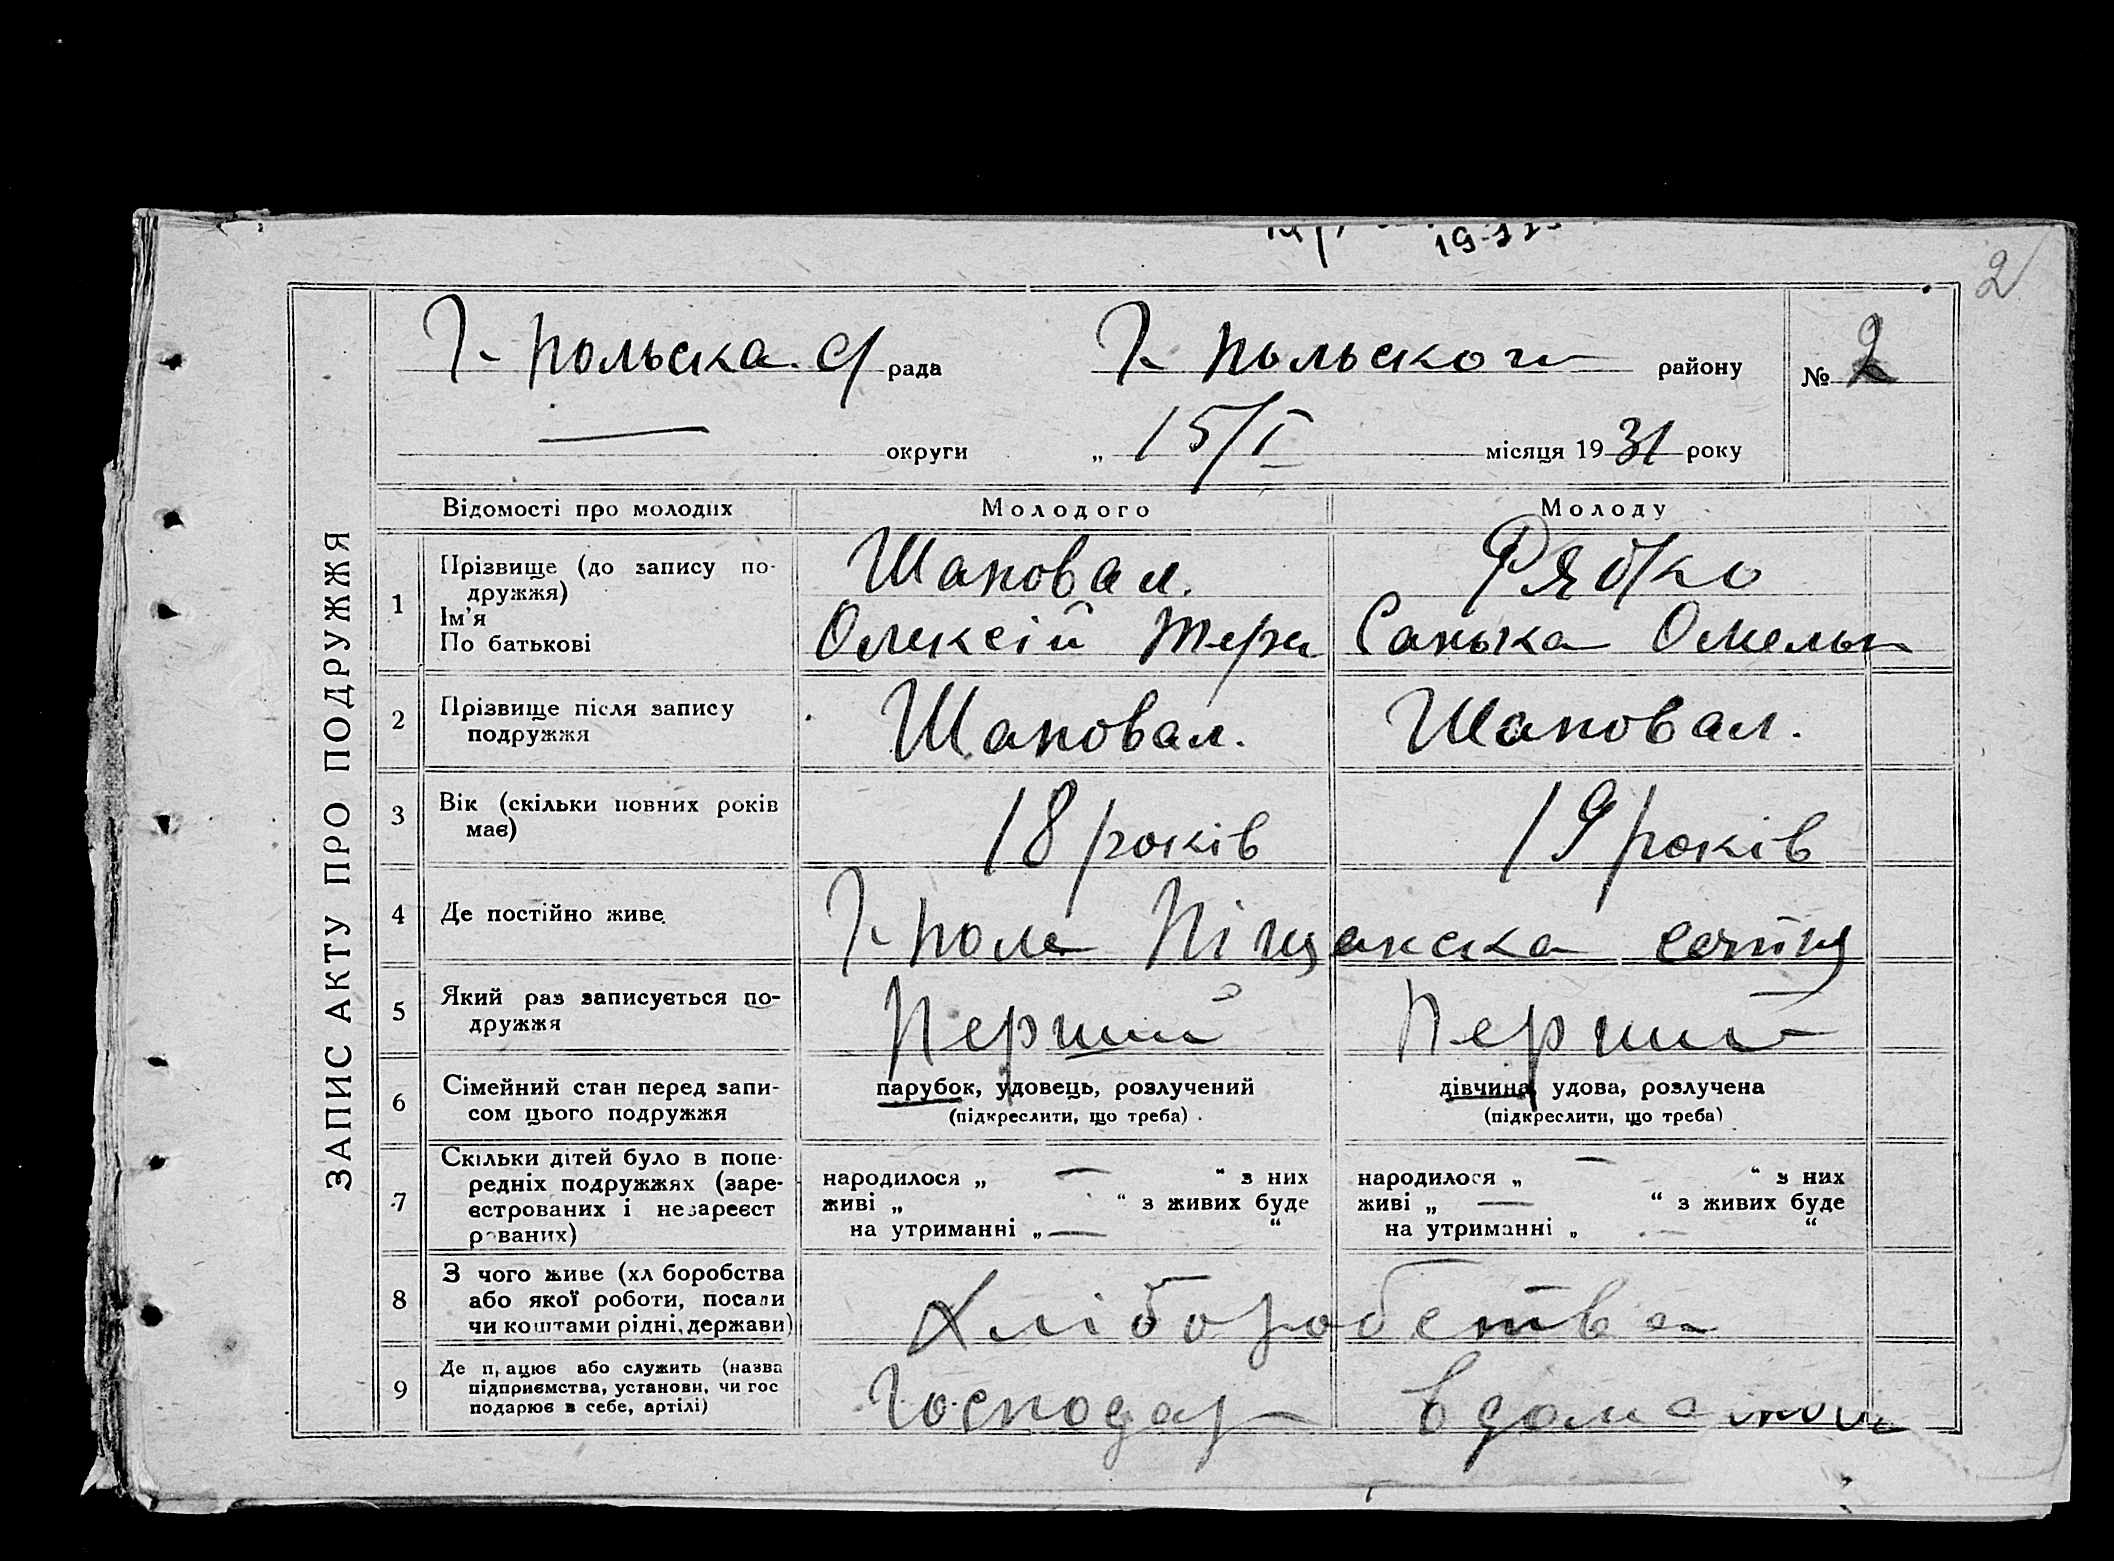 2
ЗАПИС АКТУ ПРО ПОДРУЖЖЯ
Г-польска с/рада Г-польского району № 2
округи „ 15/I місяця 1931 року
Відомості про молодих Молодого Молоду
1 Прізвище (до запису по-
дружжя)
Ім'я
По батькові
Шаповал.
Олексій
Рябко
Санька Омельк
2 Прізвище після запису
подружжя
Шаповал. Шаповал.
3 Вік (скільки повних років
має)
18 років 19 років
4 Де постійно живе
Г-поле Піщанска сотня
5 Який раз записується по-
дружжя
Перший Перший
6 Сімейний стан перед запи-
сом цього подружжя
парубок, удовець, розлучений
(підкреслити, що треба)
дівчина, удова, розлучена
(підкреслити, що треба)
7 Скільки дітей було в попе-
редніх подружжях (заре-
єстрованих і незареєст
рованих)
народилося „ — “ з них
живі „ “ з живих буде
на утриманні „ — “
народилося „ — “ з них
живі „ — “ з живих буде
на утриманні „ — “
8 З чого живе (хл боробства
або якої роботи, посади
чи коштами рідні, держави)
Хліборобства
9 Де працює або служить (назва
підприємства, установи, чи гос
подарює в себе, артілі)
Господар